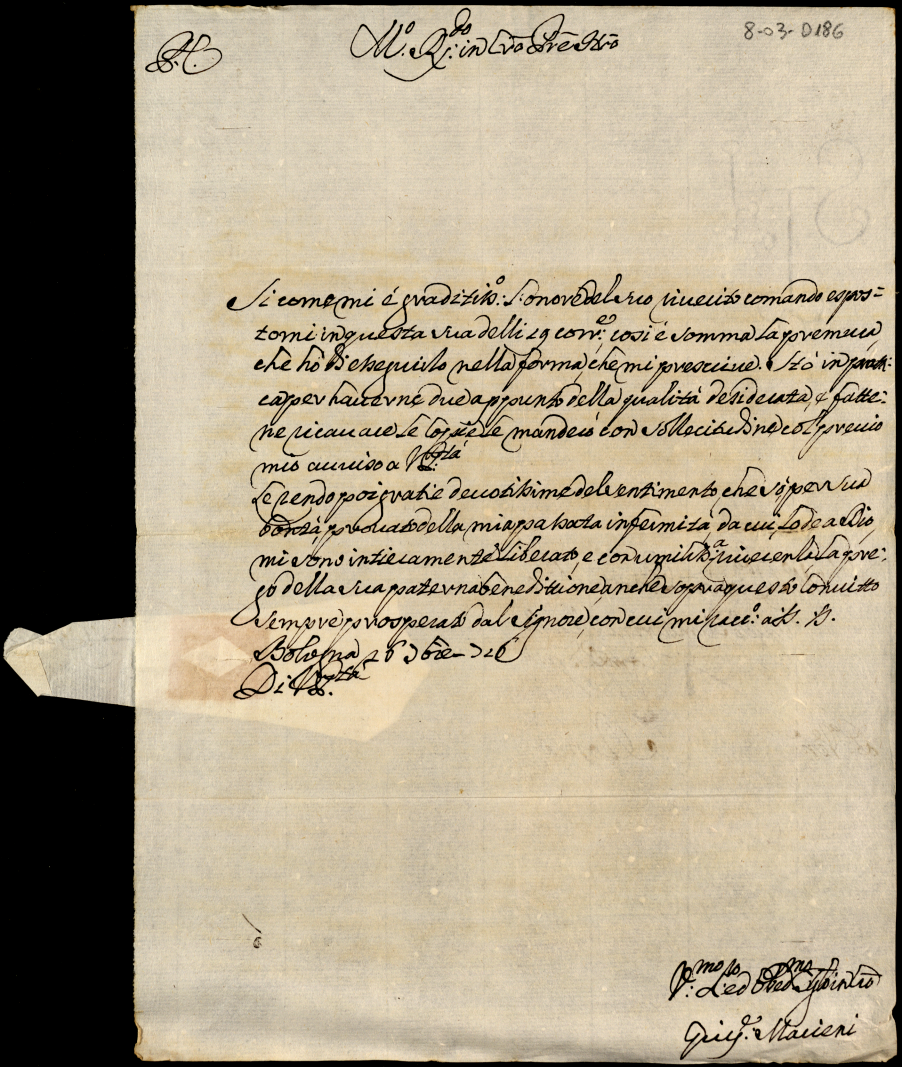 8-03-D186
P.C.
M.º R.do in Xρo Pre Nrõ
Si come mi è graditiss.º l'onore del suo riverito comando espos=
tomi in questa sua delli 19 corr.e, così è somma la premura
che hò di eseguirlo nella forma, che mi prescrive. Stò in prati:
ca per haverne due appunto della qualità desiderata, e fatte=
ne ricavare le copie le manderò con sollecitudine col previo
mio avviso a V. P.tà
Le rendo poi gratie devotissime del sentimento che sò per sua
bontà provato della mia passata infermità, da cui lode a Dio
mi sono intieramente liberato, e con umiliss.a riverenza la pre=
go della sua paterna benedittione anche sopra questo Convitto
sempre prosperato dal Signore, con cui mi racc.º a SS. SS.
Bologna 26 Xbre 726
Di V. P.tà
V.mo S.º ed Obed.mo f. in Xρo
Giu.e Macieni